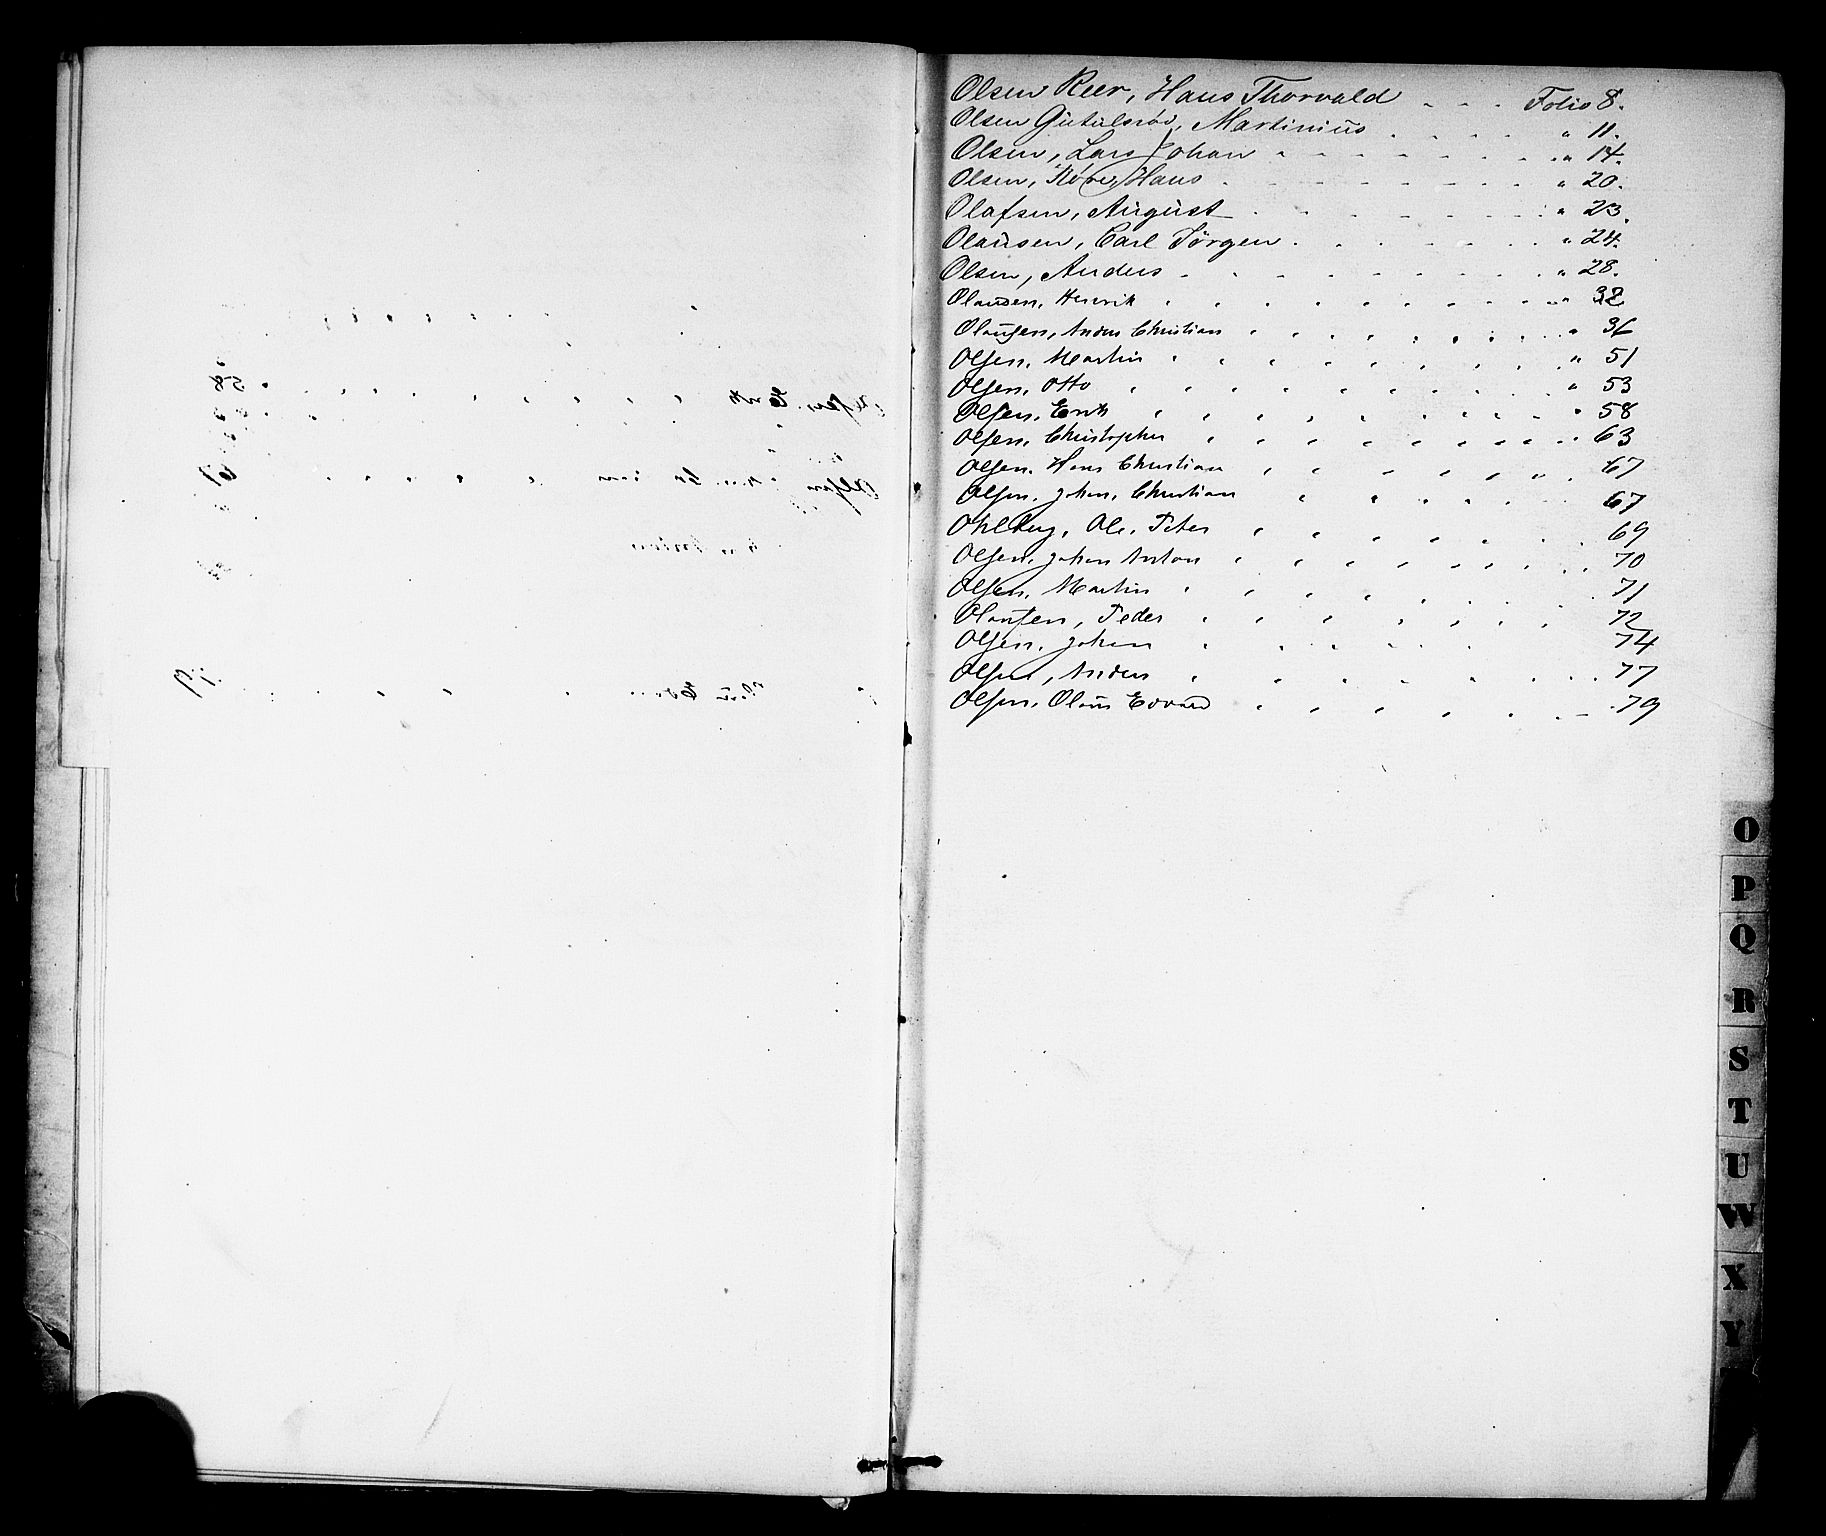 Olsen Reer, Hans Thorvald - - - Folio 8.
Olsen Gutulsröd, Martinius . . . . " 11.
Olsen, Lars Johan - - - - - - " 14.
Olsen, Höre, Hans . - - - - - " 20.
Olafsen, August - - - - - - " 23.
Olausen, Carl Jörgen . . . . . " 24.
Olsen, Anders - - - - - - - " 28.
Olausen, Henrik " 32
Olausen, Anders Christian " 36
Olsen, Martin " 51
Olsen, Otto " 53
Olsen, Erik " 58
Olsen, Christopher " 63
Olsen, Hans Christian " 67
Olsen, Johan, Christian 67
Ohlberg, Ole, Peter 69
Olsen, Johan Anton 70
Olsen, Martin 71
Olausen, Peder 72
Olsen, Johan 74
Olsen, Anders 77
Olsen, Olaus Edvard 79
O
P
Q
R
S
T
U
W
X
Y